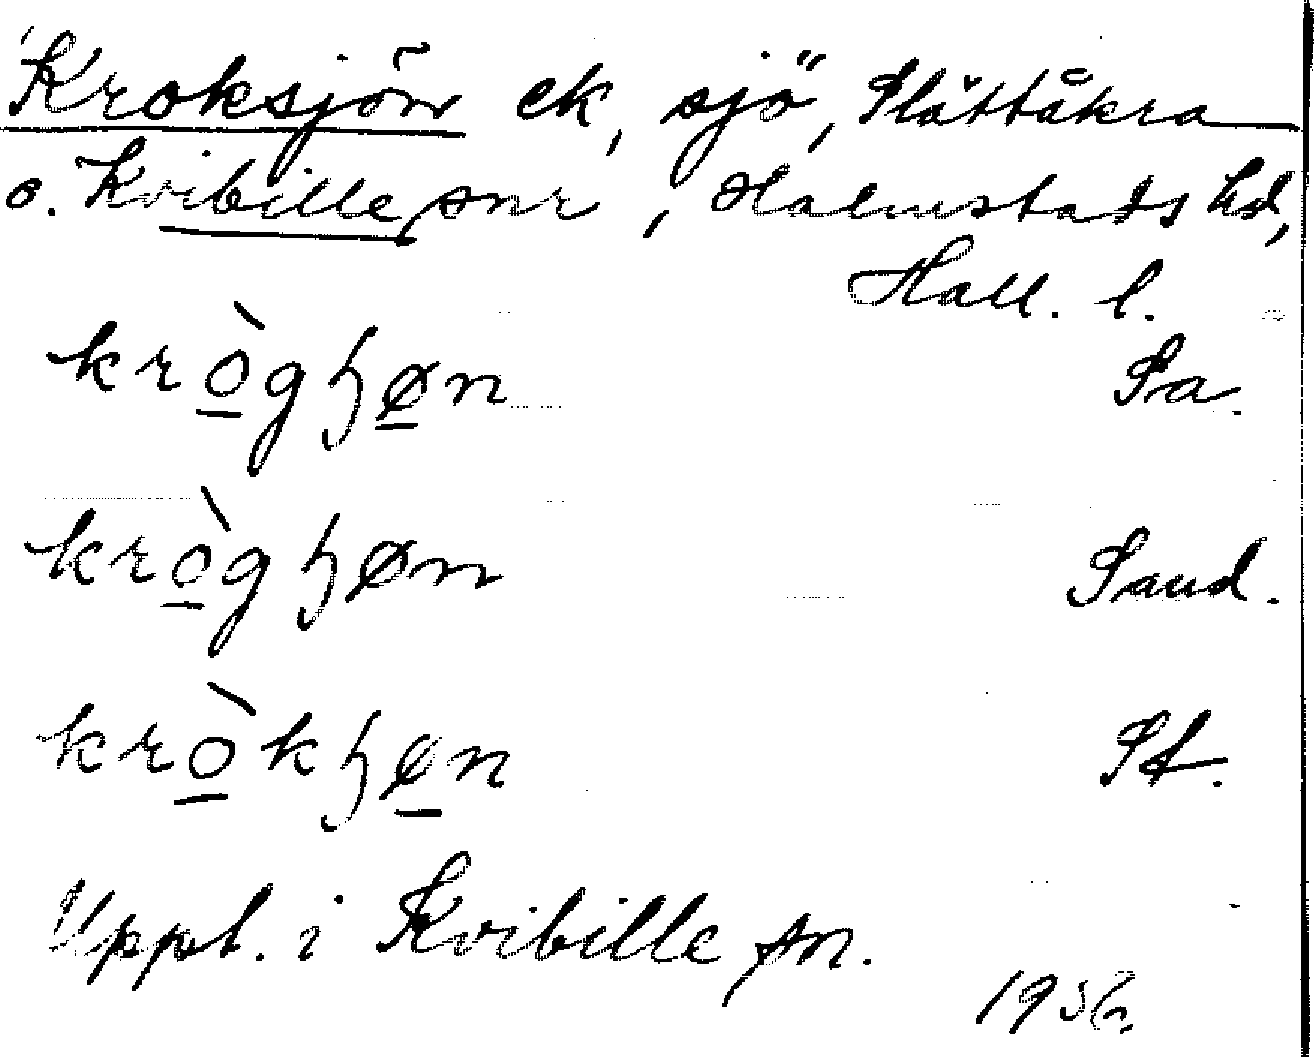 Kroksjön ek, sjö, Slättåkra
o. Kvibille snr, Halmstads hd,
Hall. l.
krò̲gɧø̲n Sa.
krò̲gɧøn Sand.
krò̲kɧø̲n St.
Uppt. i Kvibille sn.